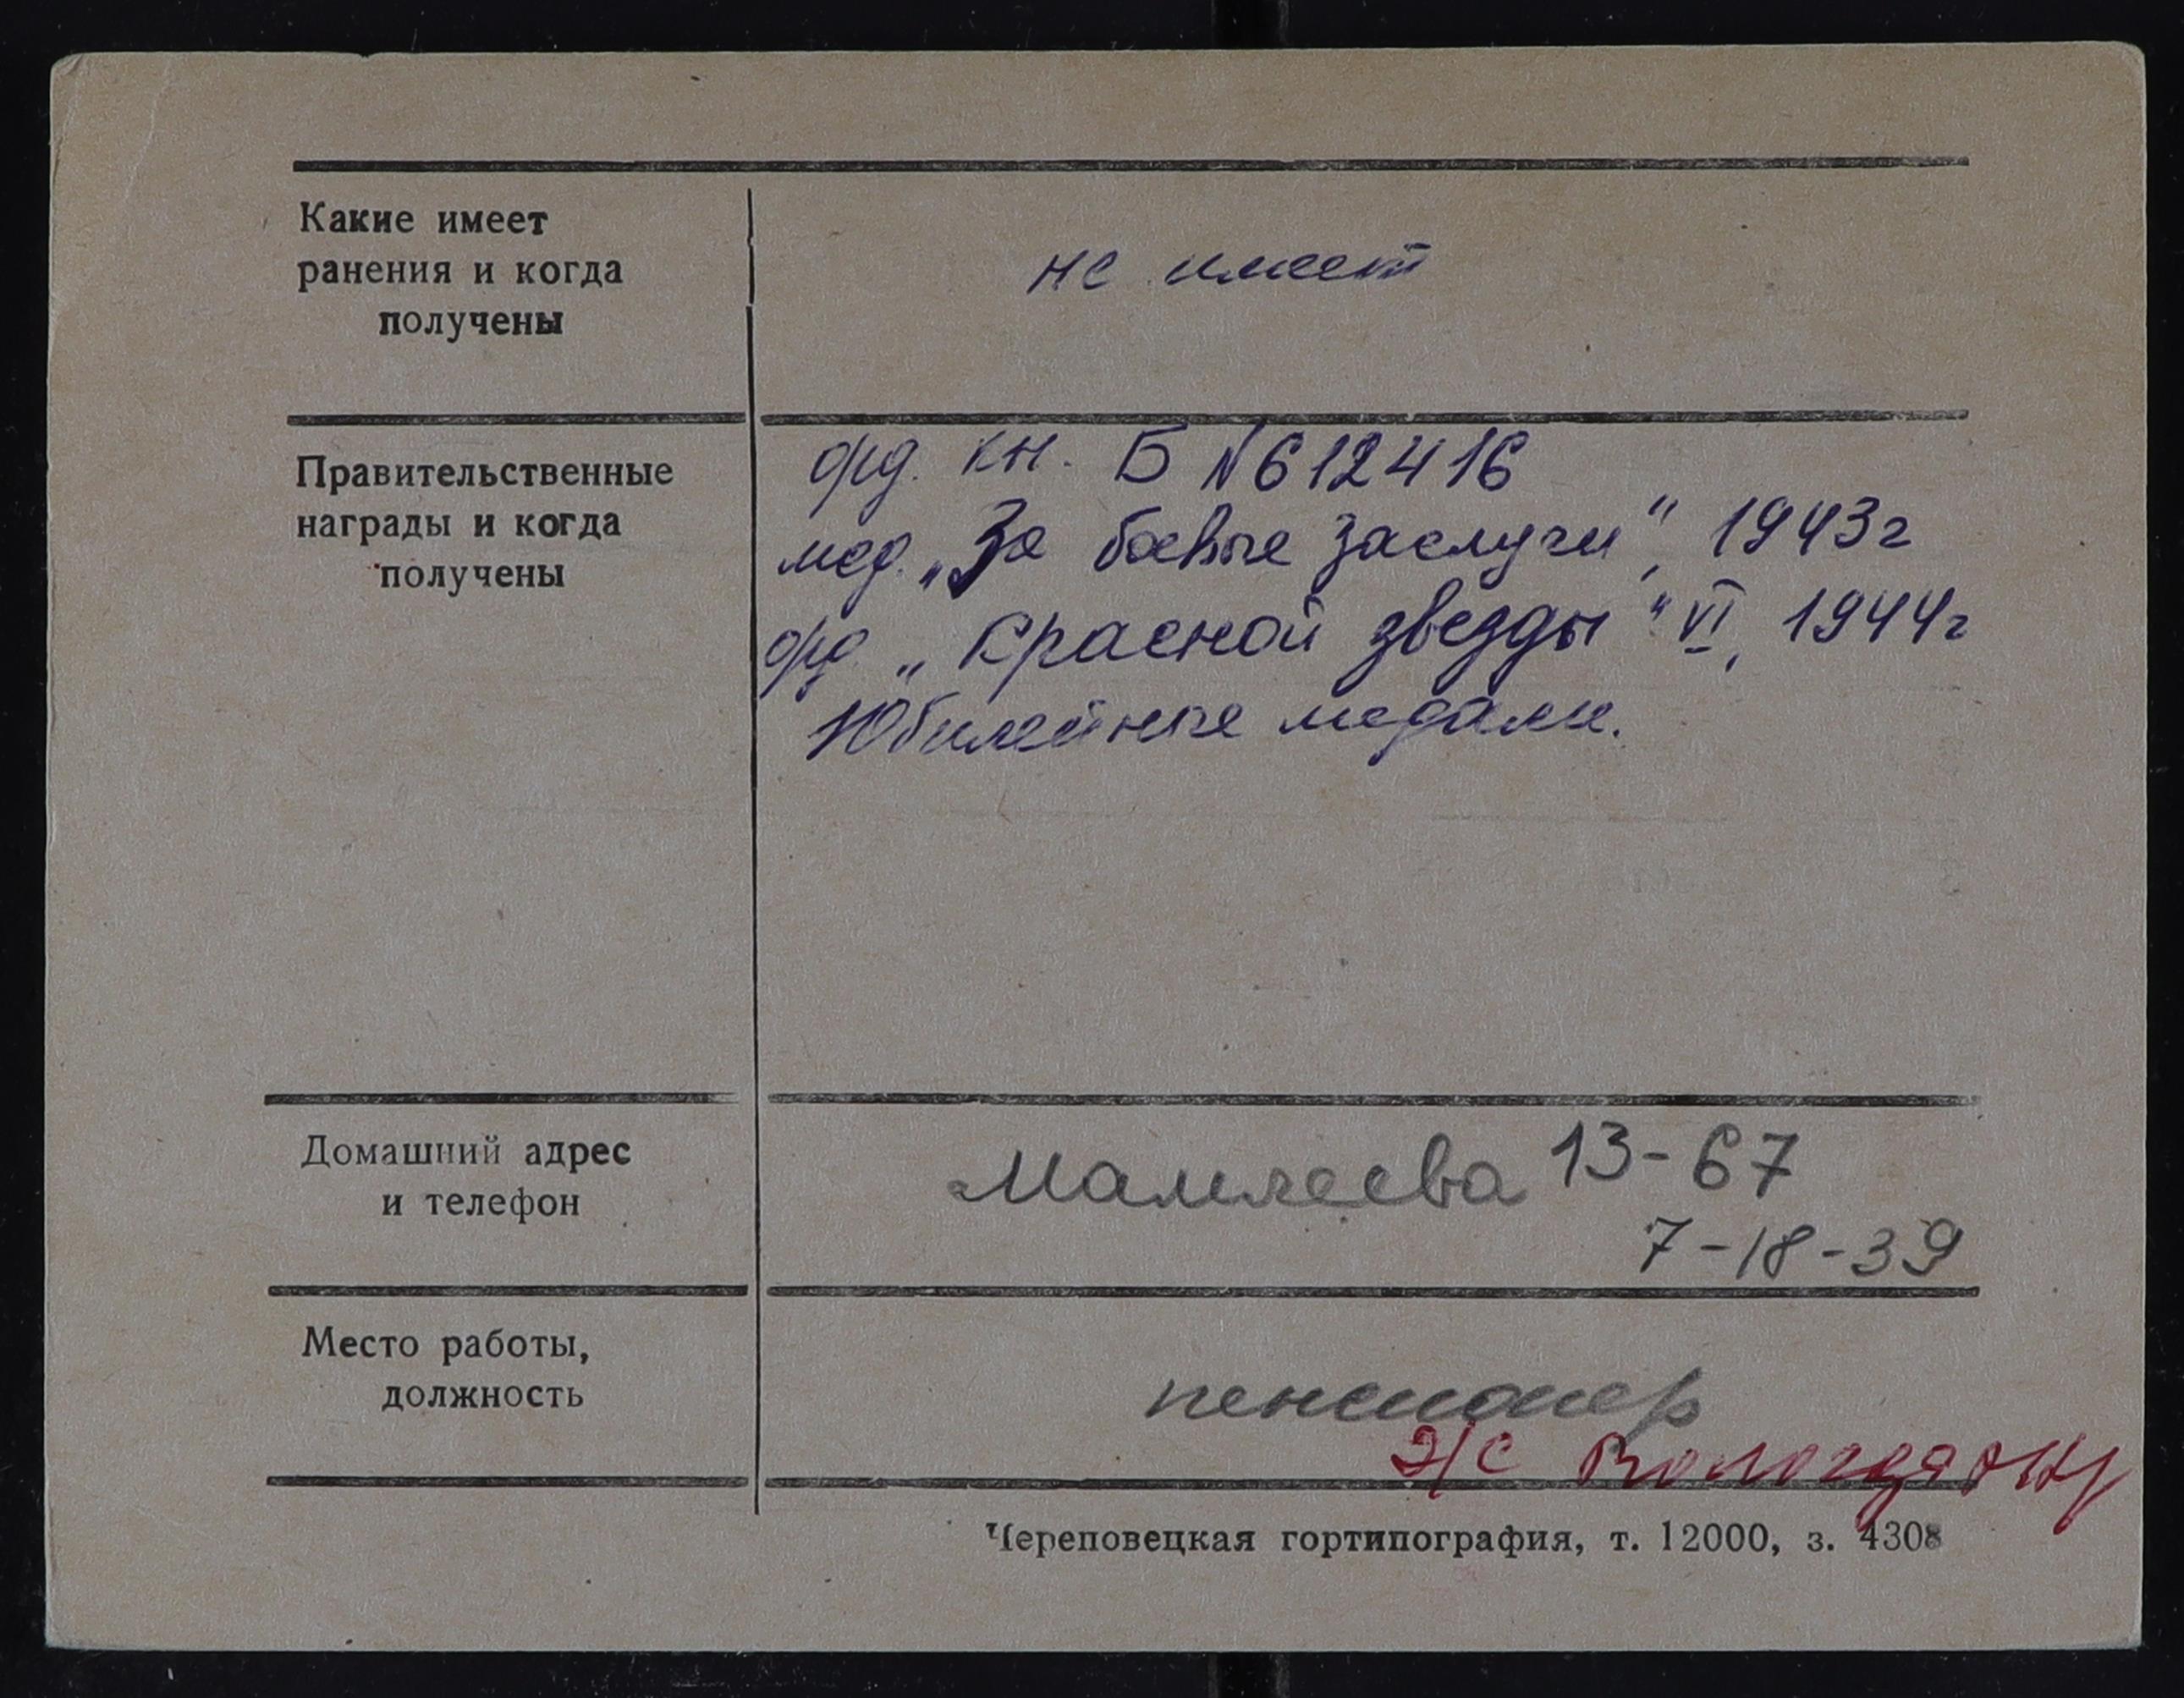 Какие имеет
ранения и когда
получены
не имеет
Правительственные
награды и когда
получены
орд. кн. Б N 612416
мед. „За боевые заслуги“, 1943г
орд „Красной звезды“ VI, 1944г
Юбилейные медали.
Домашний адрес
и телефон
Мамлеева 13-67
7-18-39
Место работы,
должность
пенсионер
Э/С
Череповецкая гортипография, т. 12000, з. 4308